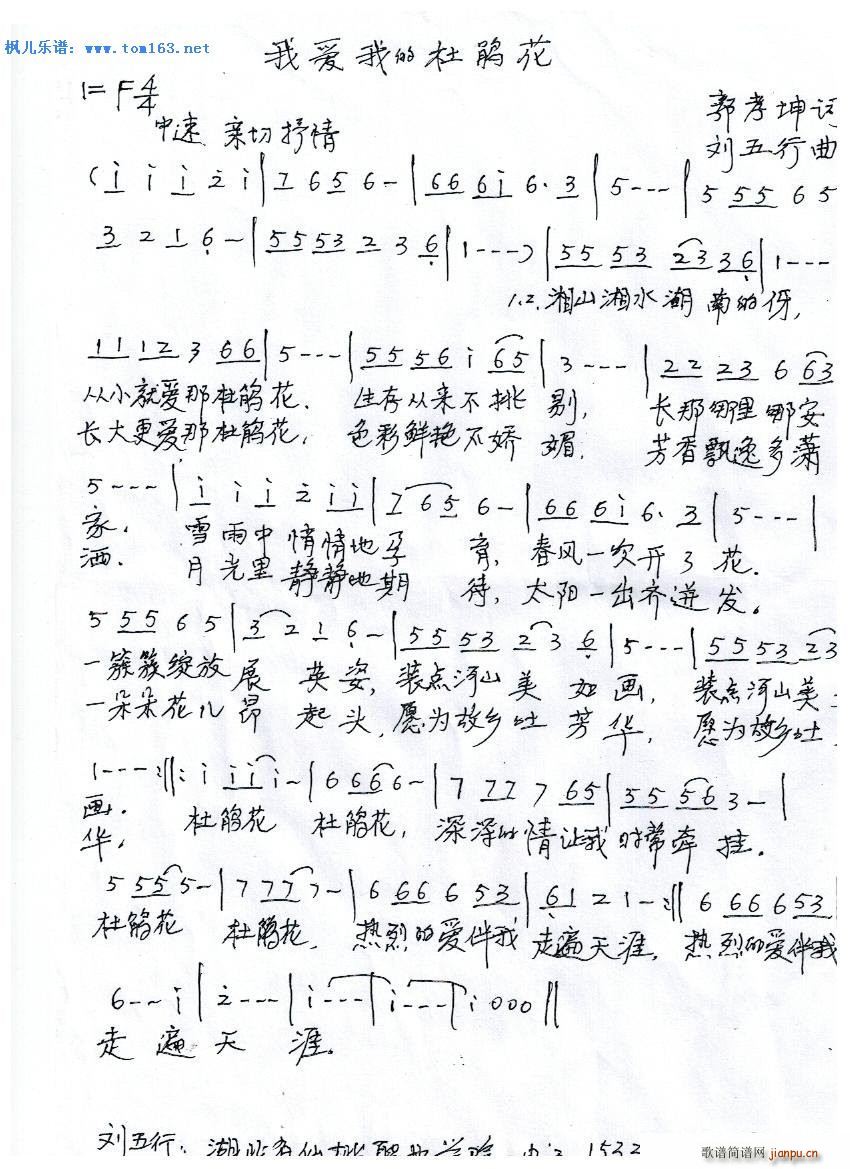 枫儿乐谱：www.tom163.net
我爱我的杜鹃花
1=F4/4
中速 亲切抒情
郭孝坤词
刘五行曲
(i i i 2 i | 7 6 5 6 - | 6 6 6 i 6. 3 | 5 - - - | 5 5 5 6 5
3 2 1 6 - | 5 5 5 3 2 3 6 | 1 - - -) | 5 5 5 3 2 3 3 6 | 1 - - -
1.2.湘山湘水湖南的伢,
1 1 1 2 3 6 6 | 5 - - - | 5 5 5 6 i 6 5 | 3 - - - | 2 2 2 3 6 6 3
从小就爱那杜鹃花. 生存从来不挑剔, 长那哪里哪安
长大更爱那杜鹃花, 色彩鲜艳不娇媚. 芳香飘逸多潇
5 - - - | i i i 2 i i | 7 6 5 6 - | 6 6 6 i 6. 3 | 5 - - - |
家. 雪雨中悄悄地孕育, 春风一次开了花.
洒. 月光里静静地期待, 太阳一出齐迸发.
5 5 5 6 5 | 3 2 1 6 - | 5 5 5 3 2 3 6 | 5 - - - | 5 5 5 3 2 3
一簇簇绽放展英姿, 装点河山美如画, 装点河山美
一朵朵花儿昂起头, 愿为故乡吐芳华, 愿为故乡吐
1 - - - :‖: i i i i - | 6 6 6 6 - | 7 7 7 7 6 5 | 5 5 5 6 3 - |
画. 杜鹃花 杜鹃花, 深深的情让我时常牵挂.
华,
5 5 5 5 - | 7 7 7 7 - | 6 6 6 6 5 3 | 6 1 2 1 - :‖ 6 6 6 6 5 3
杜鹃花 杜鹃花, 热烈的爱伴我走遍天涯, 热烈的爱伴我
6 - - i | 2 - - - | i - - - | i - - - | i 0 0 0 ‖
走遍天涯.
刘五行: 湖北省仙桃职业学院
歌谱简谱网 jianpu.cn